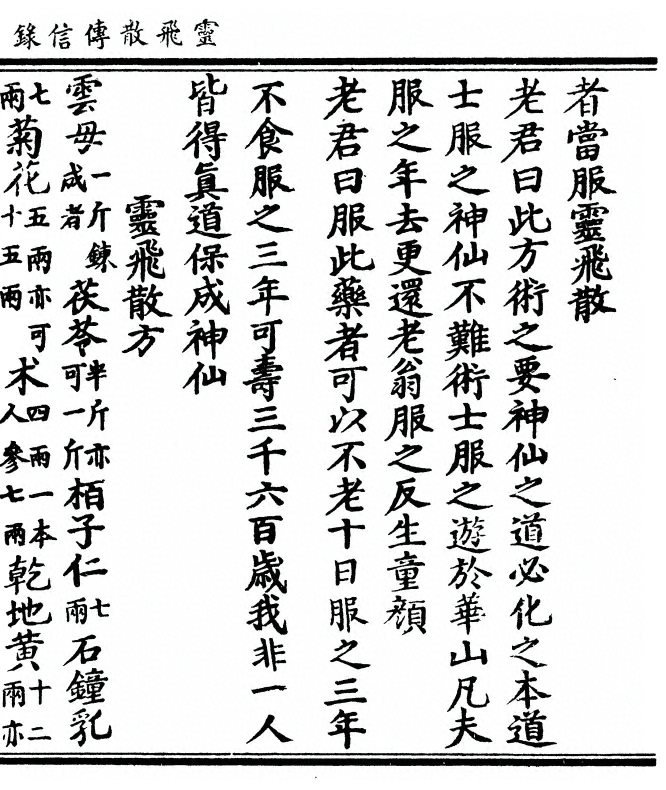 靈飛散傳信錄
者當服靈飛散
老君曰此方術之要神仙之道必化之本道
士服之神仙不難術士服之遊於華山凡夫
服之年去更還老翁服之反生童顔
老君曰服此藥者可以不老十日服之三年
不食服之三年可壽三千六百歲我非一人
皆得眞道保成神仙
靈飛散方
雲母一斤鍊成者茯苓半斤亦可一斤栢子仁七兩石鐘乳
七兩菊花五兩亦可十五兩术四兩一本人參七兩乾地黃十二兩亦